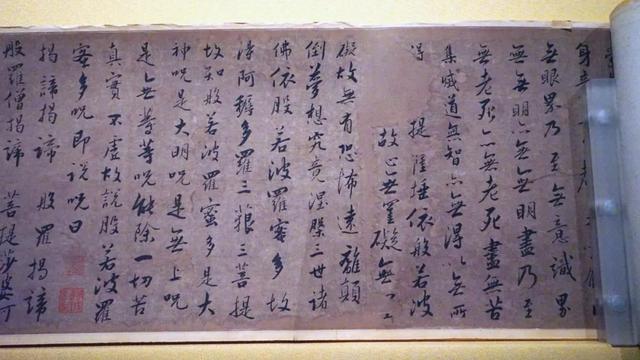 身
無眼界乃至無意識界
無無明亦無無明盡乃至
無老死亦無老死盡無苦
集滅道無智亦無得以無所
得 提薩埵依般若波
故心無罣礙無
礙故無有恐怖遠離顛
倒夢想究竟涅槃三世諸
佛依般若波羅蜜多故
得阿耨多羅三藐三菩提
故知般若波羅蜜多是大
神呪是大明呪是無上呪
是無等等呪能除一切苦
真實不虛故說般若波羅
蜜多呪即說呪曰
揭諦揭諦 般羅揭諦
般羅僧揭諦 菩提莎婆